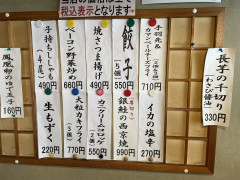 税込表示となります。
長芋の千切り
(わさび醤油)
330円
手羽先&
710円
イカの塩辛
270円
餃子
(5個)
550円
銀鮭の西京焼
990円
焼さつま揚げ
490円
カニクリームコロッケ
550円
ベーコン野菜炒め
660円
大粒カキフライ
(3個)
770円
子持ちししゃも
(4尾)
490円
生もずく
220円
鳳凰卵のゆで玉子
160円